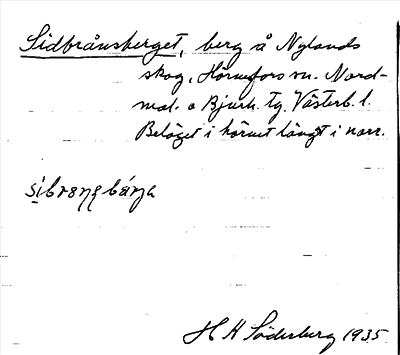 Sidbrånsberget, berg å Nylands
skog, Hörnefors sn. Nord-
mal. o Bjurh. tg. Västerb. l.
Beläget i hörnet längt i norr.
H H Söderberg 1935.